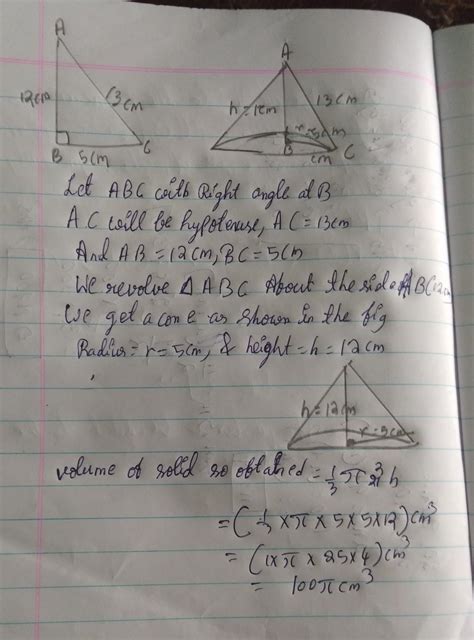 A
A
12cm
13cm
h=12cm
13cm
r=5cm
B
5cm
C
B
cm
C
Let ABC with Right angle at B
AC will be hypotenuse, AC = 13cm
And AB = 12cm, BC = 5cm
We revolve △ ABC About the side AB (12cm
We get a cone as shown in the fig
Radius = r = 5cm, & height = h = 12cm
h = 12cm
r=5cm
volume of solid so obtained = 1/3 π r² h
= (1/3 × π × 5 × 5 × 12) cm³
= (1 × π × 25 × 4) cm³
= 100π cm³